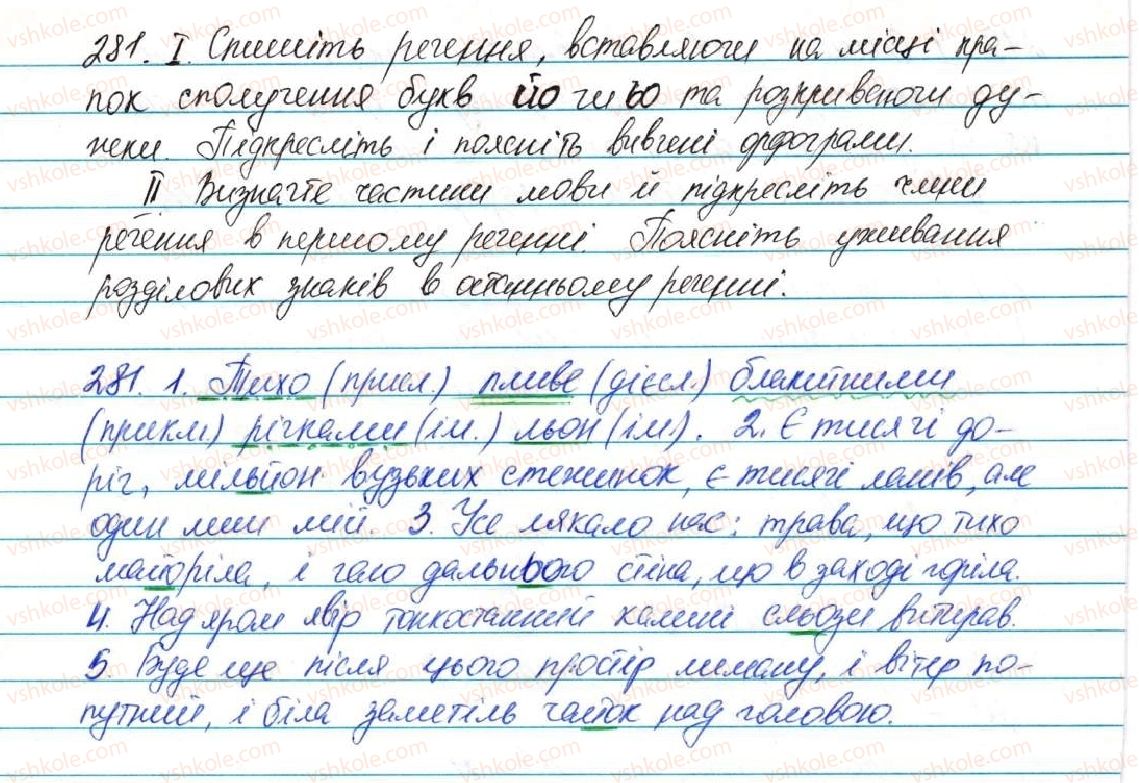 281. I. Спишіть речення, вставляючи на місці кра-
пок сполучення букв йо чи ьо та розкриваючи ду-
жки. Підкресліть і поясніть вивчені орфограми.
II Визначте частини мови й підкресліть члени
речення в першому реченні. Поясніть уживання
розділових знаків в останньому реченні.
281. 1. Тихо (присл.) пливе (дієсл.) блакитними
(прикм.) річками (ім.) льон (ім.). 2. Є тисячі до-
ріг, мільйон вузьких стежинок, є тисячі ланів, але
один лиш мій. 3. Усе лякало нас: трава, що тихо
майоріла, і гаю дального стіна, що в заході горіла.
4. Над яром явір тонкостанний калині сльози витирав.
5. Буде ще після цього простір лиману, і вітер по-
путний, і біла заметіль чайок над головою.